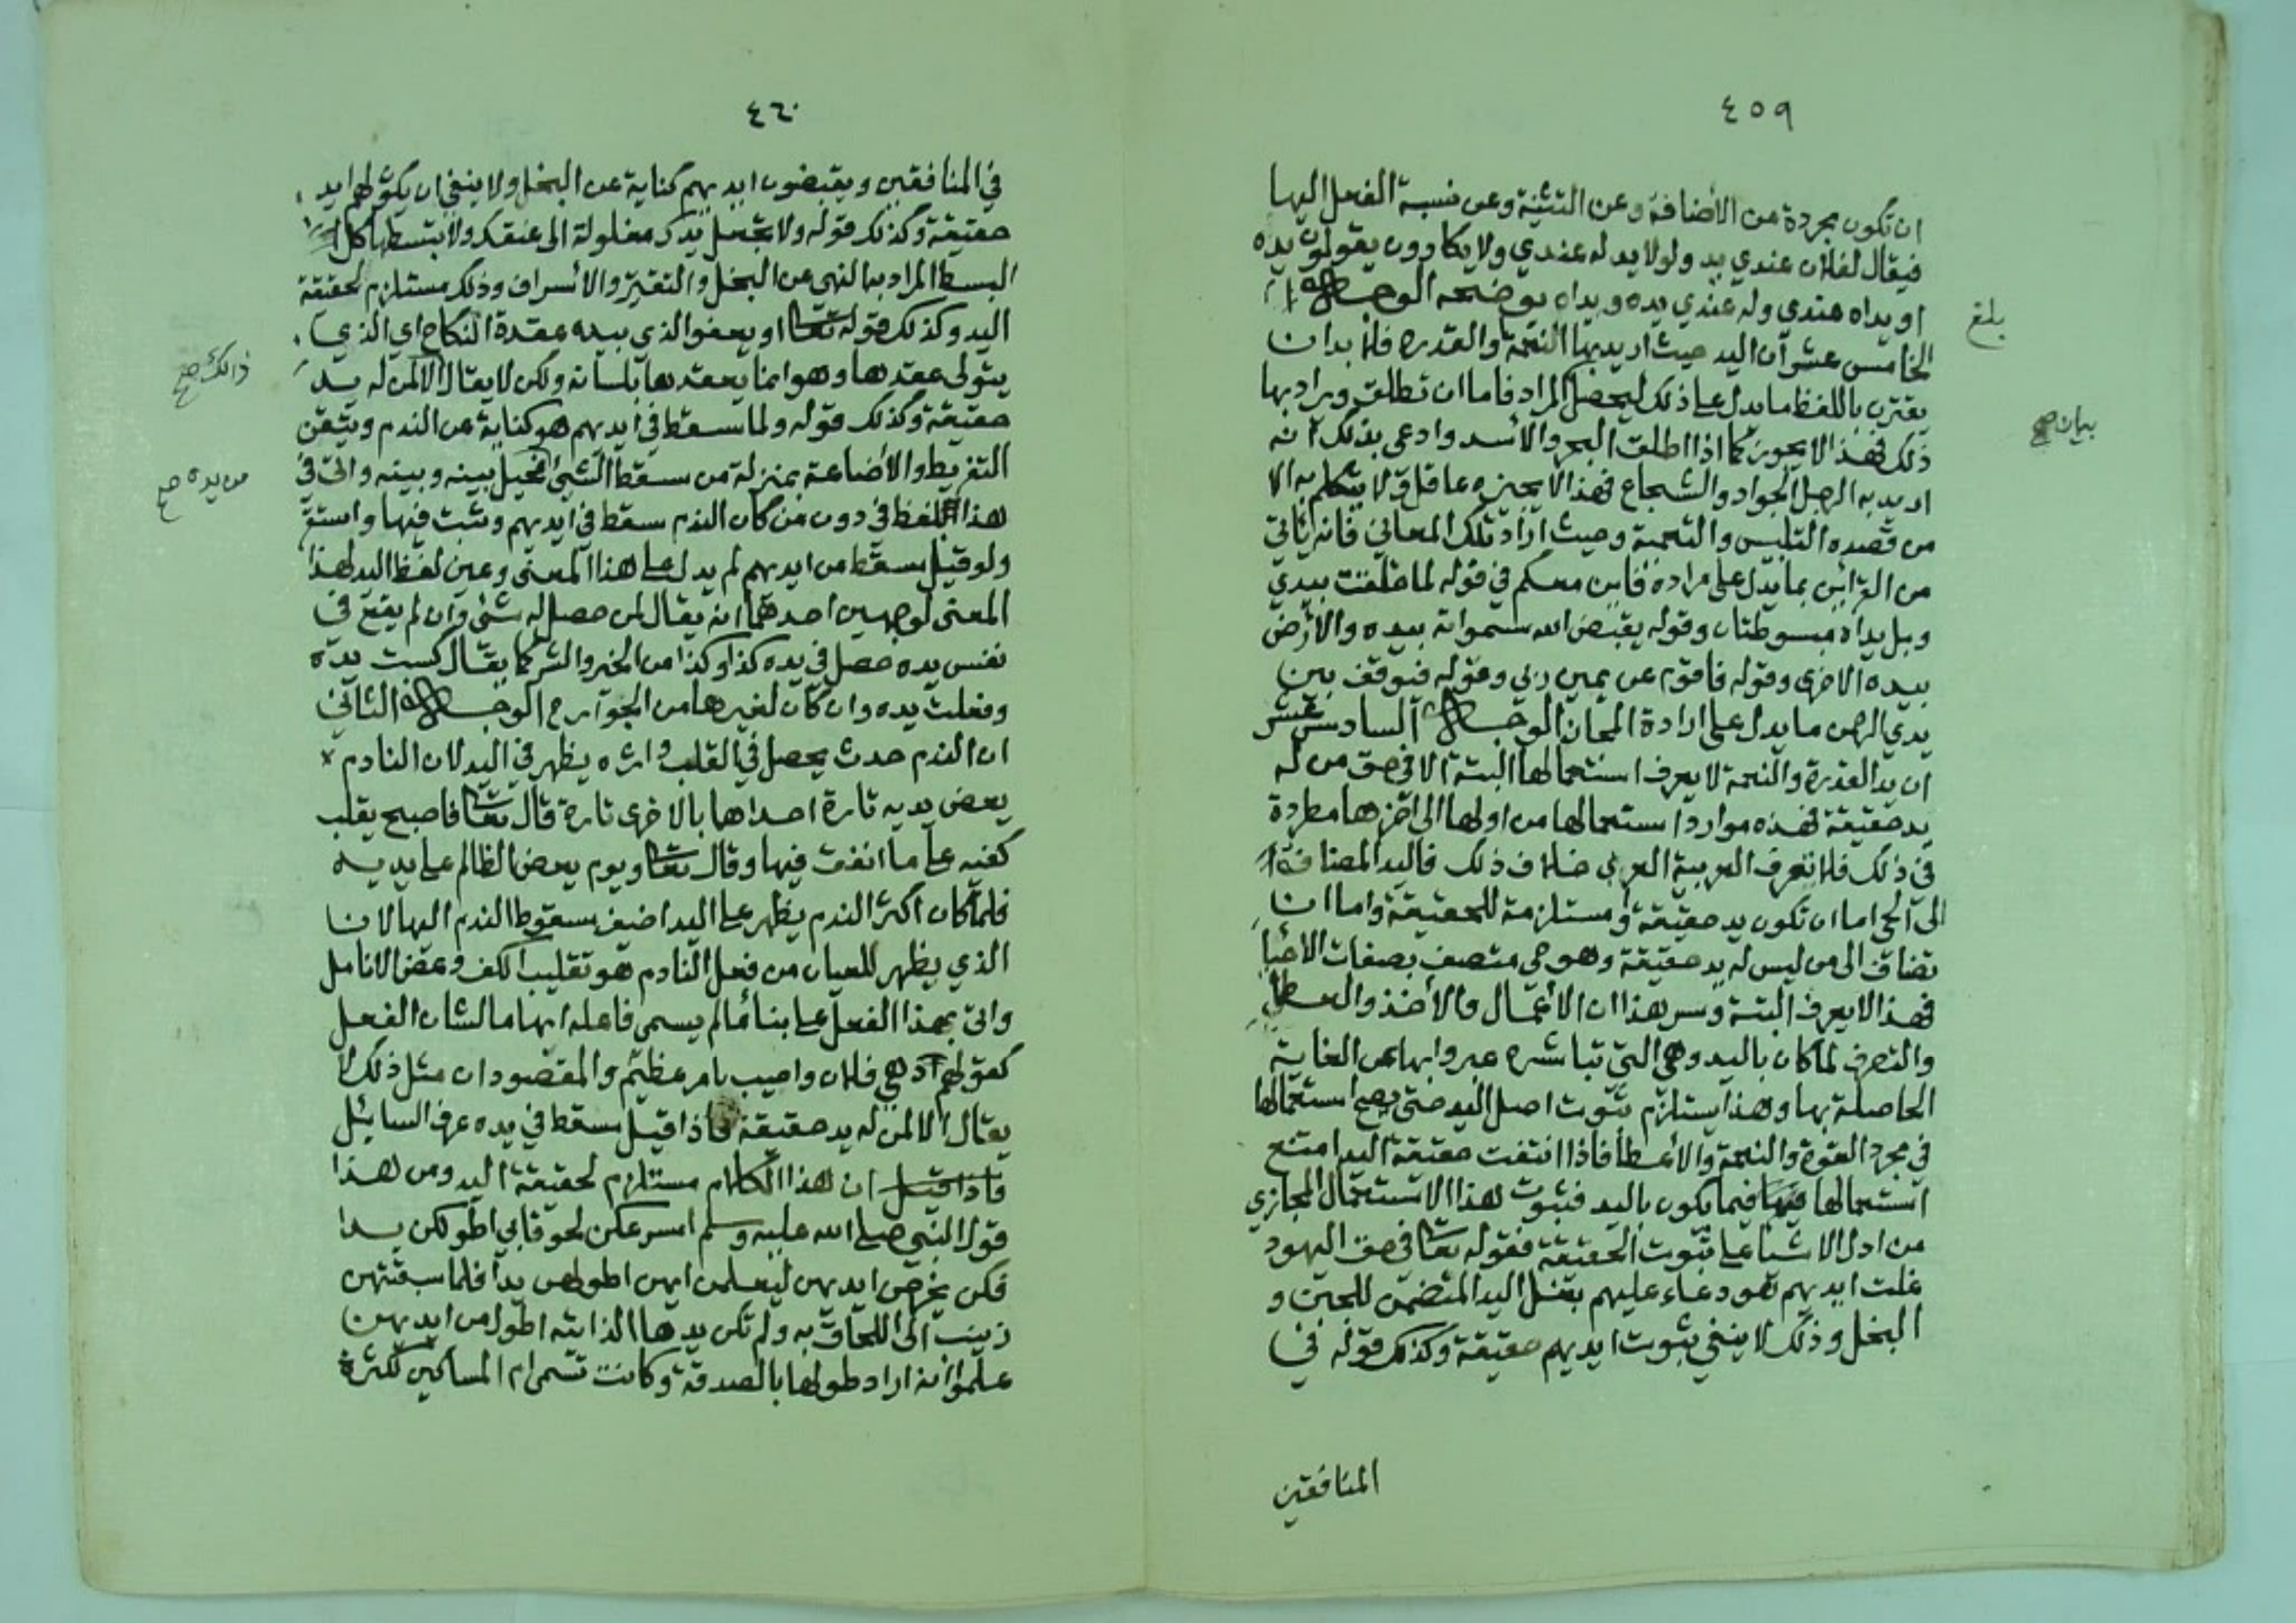 ٤٥٩
ان تكون مجردة من الأضافة وعن التثنية وعن نسبة الفعل اليها
فيقال لفلان عندي يد ولولا يد له عندي ولا يكادون يقولون يده
او يداه عندي وله عندي يده ويداه يوضحه الوجه
الخامس عشر ان اليد حيث اريد بها النعمة والقدرة فلا بد ان
يقترن باللفظ ما يدل على ذلك ليحصل المراد فاما ان تطلق ويراد بها
ذلك فهذا لا يجوز كما اذا اطلق البحر والأسد وادعى بذلك انه
اريد به الرجل الجواد والشجاع فهذا لا يجيزه عاقل ولا يتكلم به الا
من قصده التلبيس والتعمية وحيث اراد تلك المعاني فانه يأتي
من القرائن بما يدل على مراده فاين معكم في قوله لما خلقت بيدي
وبل يداه مبسوطتان وقوله يقبض الله سمواته بيده والأرض
بيده الاخرى وقوله فاقوم عن يمين ربي وقوله فيوقف بين
يدي الرحمن ما يدل على ارادة المجاز الوجه السادس عشر
ان يد القدرة والنعمة لا يعرف استعمالها البتة الا في حق من له
يد حقيقة فهذه موارد استعمالها من اولها الى اخرها مطردة
في ذلك فلا تعرف العربية العربي خلاف ذلك فاليد المضافة
الى الحي اما ان تكون يد حقيقة او مستلزمة للحقيقة واما ان
تضاف الى من ليس له يد حقيقة وهو حي متصف بصفات الأحيا
فهذا لا يعرف البتة وسر هذا ان الأعمال والأخذ والعطا
والتصرف لما كان باليد وهي التي تباشره عبروا بها عن الغاية
الحاصلة بها وهذا يستلزم ثبوت اصل اليد حتى يصح استعمالها
في مجرد القوة والنعمة والأعطا فاذا انتفت حقيقة اليد امتنع
استعمالها فيها فيما يكون باليد فثبوت هذا الاستعمال المجازي
من ادل الاشيا على ثبوت الحقيقة فقوله تعا في حق اليهود
غلت ايديهم هو دعاء عليهم بغل اليد المتضمن للجبن و
البخل وذلك لا ينفي ثبوت ايديهم حقيقة وكذلك قوله في
المنافقين
بلغ
بيان صح
٤٦٠
في المنافقين ويقبضون ايديهم كناية عن البخل ولا ينفي ان يكون لهم ايد
حقيقة وكذلك قوله ولا تجعل يدك مغلولة الى عنقك ولا تبسطها كل
البسط المراد بها النهي عن البخل والتقتير والأسراف وذلك مستلزم لحقيقة
اليد وكذلك قوله تعا او يعفو الذي بيده عقدة النكاح اي الذي
يتولى عقدها وهو انما يعقدها بلسانه ولكن لا يقال الا لمن له يد
حقيقة وكذلك قوله ولما سقط في ايديهم هو كناية عن الندم وتيقن
التفريط والأضاعة بمنزلة من سقط الشيئ فحيل بينه وبينه واتى في
هذا اللفظ في دون من كان الندم سقط في ايديهم وثبت فيها واستقر
ولو قيل سقط من ايديهم لم يدل على هذا المعنى وعين لفظ اليد لهذا
المعنى لوجهين احدهما انه يقال لمن حصل له شئ وان لم يقع في
نفس يده حصل في يده كذا وكذا من الخير والشر كما يقال كسبت يده
وفعلت يده وان كان لغيرها من الجوارح الوجه الثاني
ان الندم حدث يحصل في القلب واثره يظهر في اليد لان النادم
يعض يديه تارة احداها بالاخرى تارة قال تعا فاصبح يقلب
كفيه على ما انفق فيها وقال تعا ويوم يعض الظالم على يديه
فلما كان اكثر الندم يظهر على اليد اضيف سقوط الندم اليها لان
الذي يظهر للعيان من فعل النادم هو تقليب الكف وعض الانامل
واتى بهذا الفعل على بناء ما لم يسمى فاعله ابهاما لشان الفعل
كقولهم دهي فلان واصيب بامر عظيم والمقصود ان مثل ذلك لا
يقال الا لمن له يد حقيقة فاذا قيل سقط في يده عرف السائل
فاذا قيل ان هذا الكلام مستلزم لحقيقة اليد ومن هذا
قول النبي صلى الله عليه وسلم اسرعكن لحوقا بي اطولكن يدا
فكن يخرجن ايديهن ليعلمن ايهن اطولهن يدا فلما سبقتهن
زينب الى اللحاق به ولم تكن يدها الذاتيه اطول من ايديهن
علموا انه اراد طولها بالصدقة وكانت تسمى ام المساكين لكثرة
ذالك صح
من يده صح